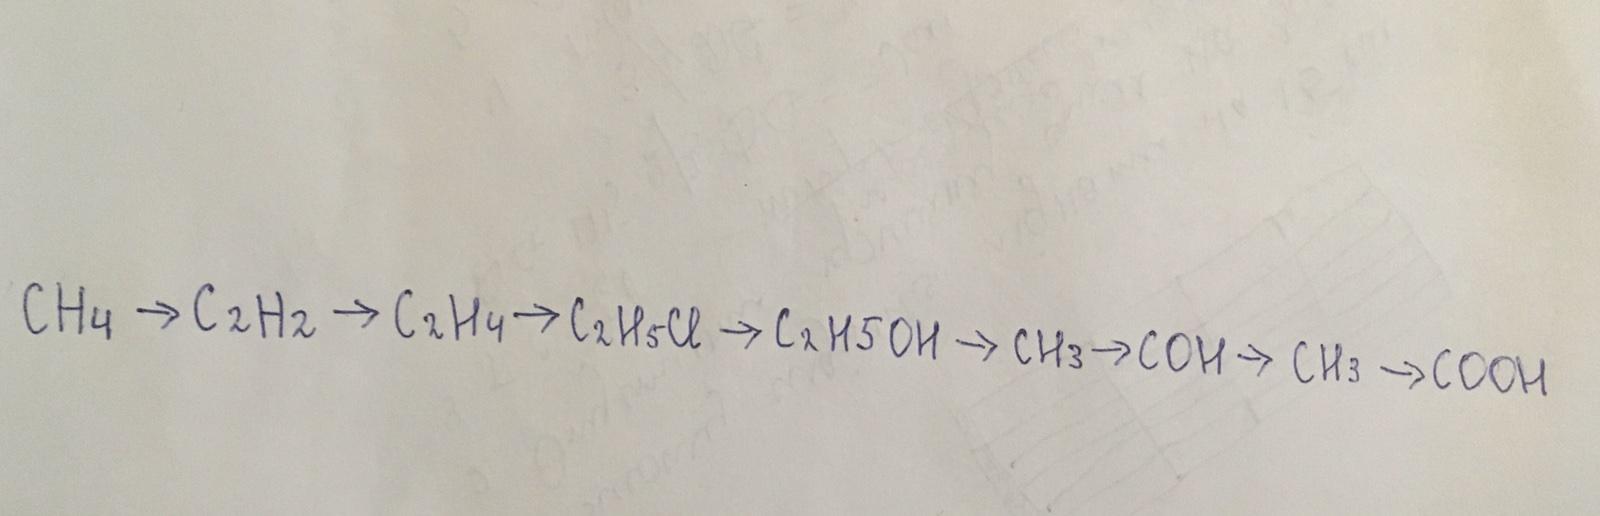 CH4 → C2H2 → C2H4 → C2H5Cl → C2H5OH → CH3 → COH → CH3 → COOH